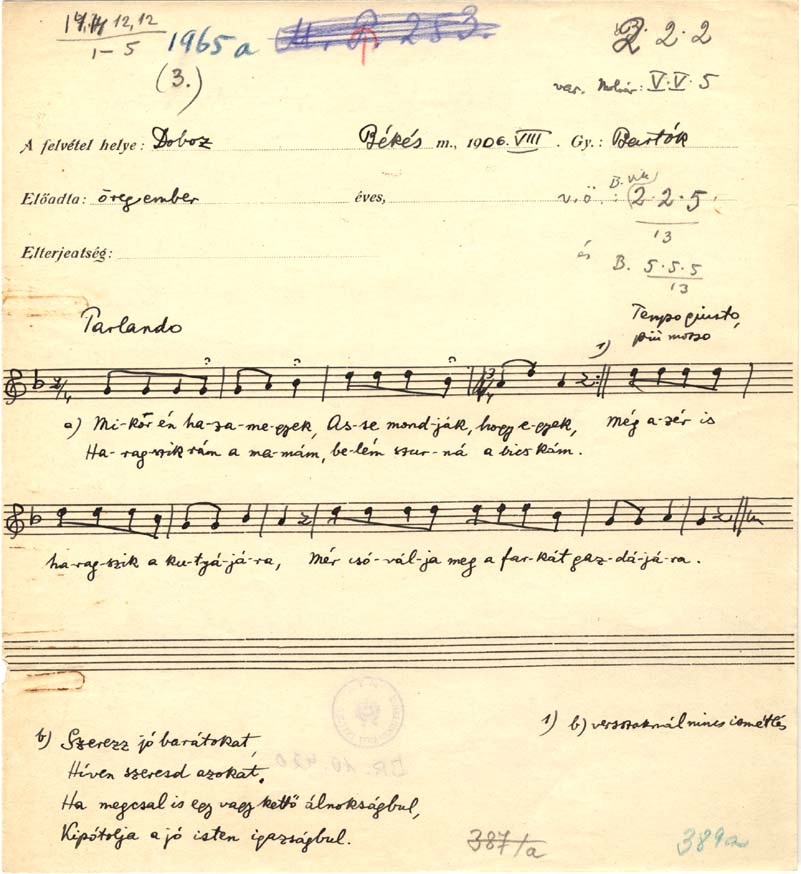 12,12
1-5
1965a
M. P. 253.
2 2 2
(3.)
var. Molnár: V. V. 5
A felvétel helye: Doboz Békés m., 1906. VIII. Gy.: Bartók
Előadta: öreg ember éves, v.ö.: 2.2.5
13
Elterjedtség:
és B. 5.5.5
13
Parlando
Tempo giusto,
più mosso
1)
a) Mi-kőr én ha-za-me-gyek, As-se mond-ják, hogy e-gyek, Még a-zér is
Ha-rag-szik rám a ma-mám, be-lém szur-ná a bics kám.
ha-rag-szik a ku-tyá-já-ra, Mér csó-vál-ja meg a far-kát gaz-dá-já-ra.
1) b) versszaknál nincs ismétlés
b) Szerezz jó barátokat,
Híven szeresd azokat.
Ha megcsal is egy vagy kettő álnokságbul,
Kipótolja a jó isten igazságbul.
387/a
389a